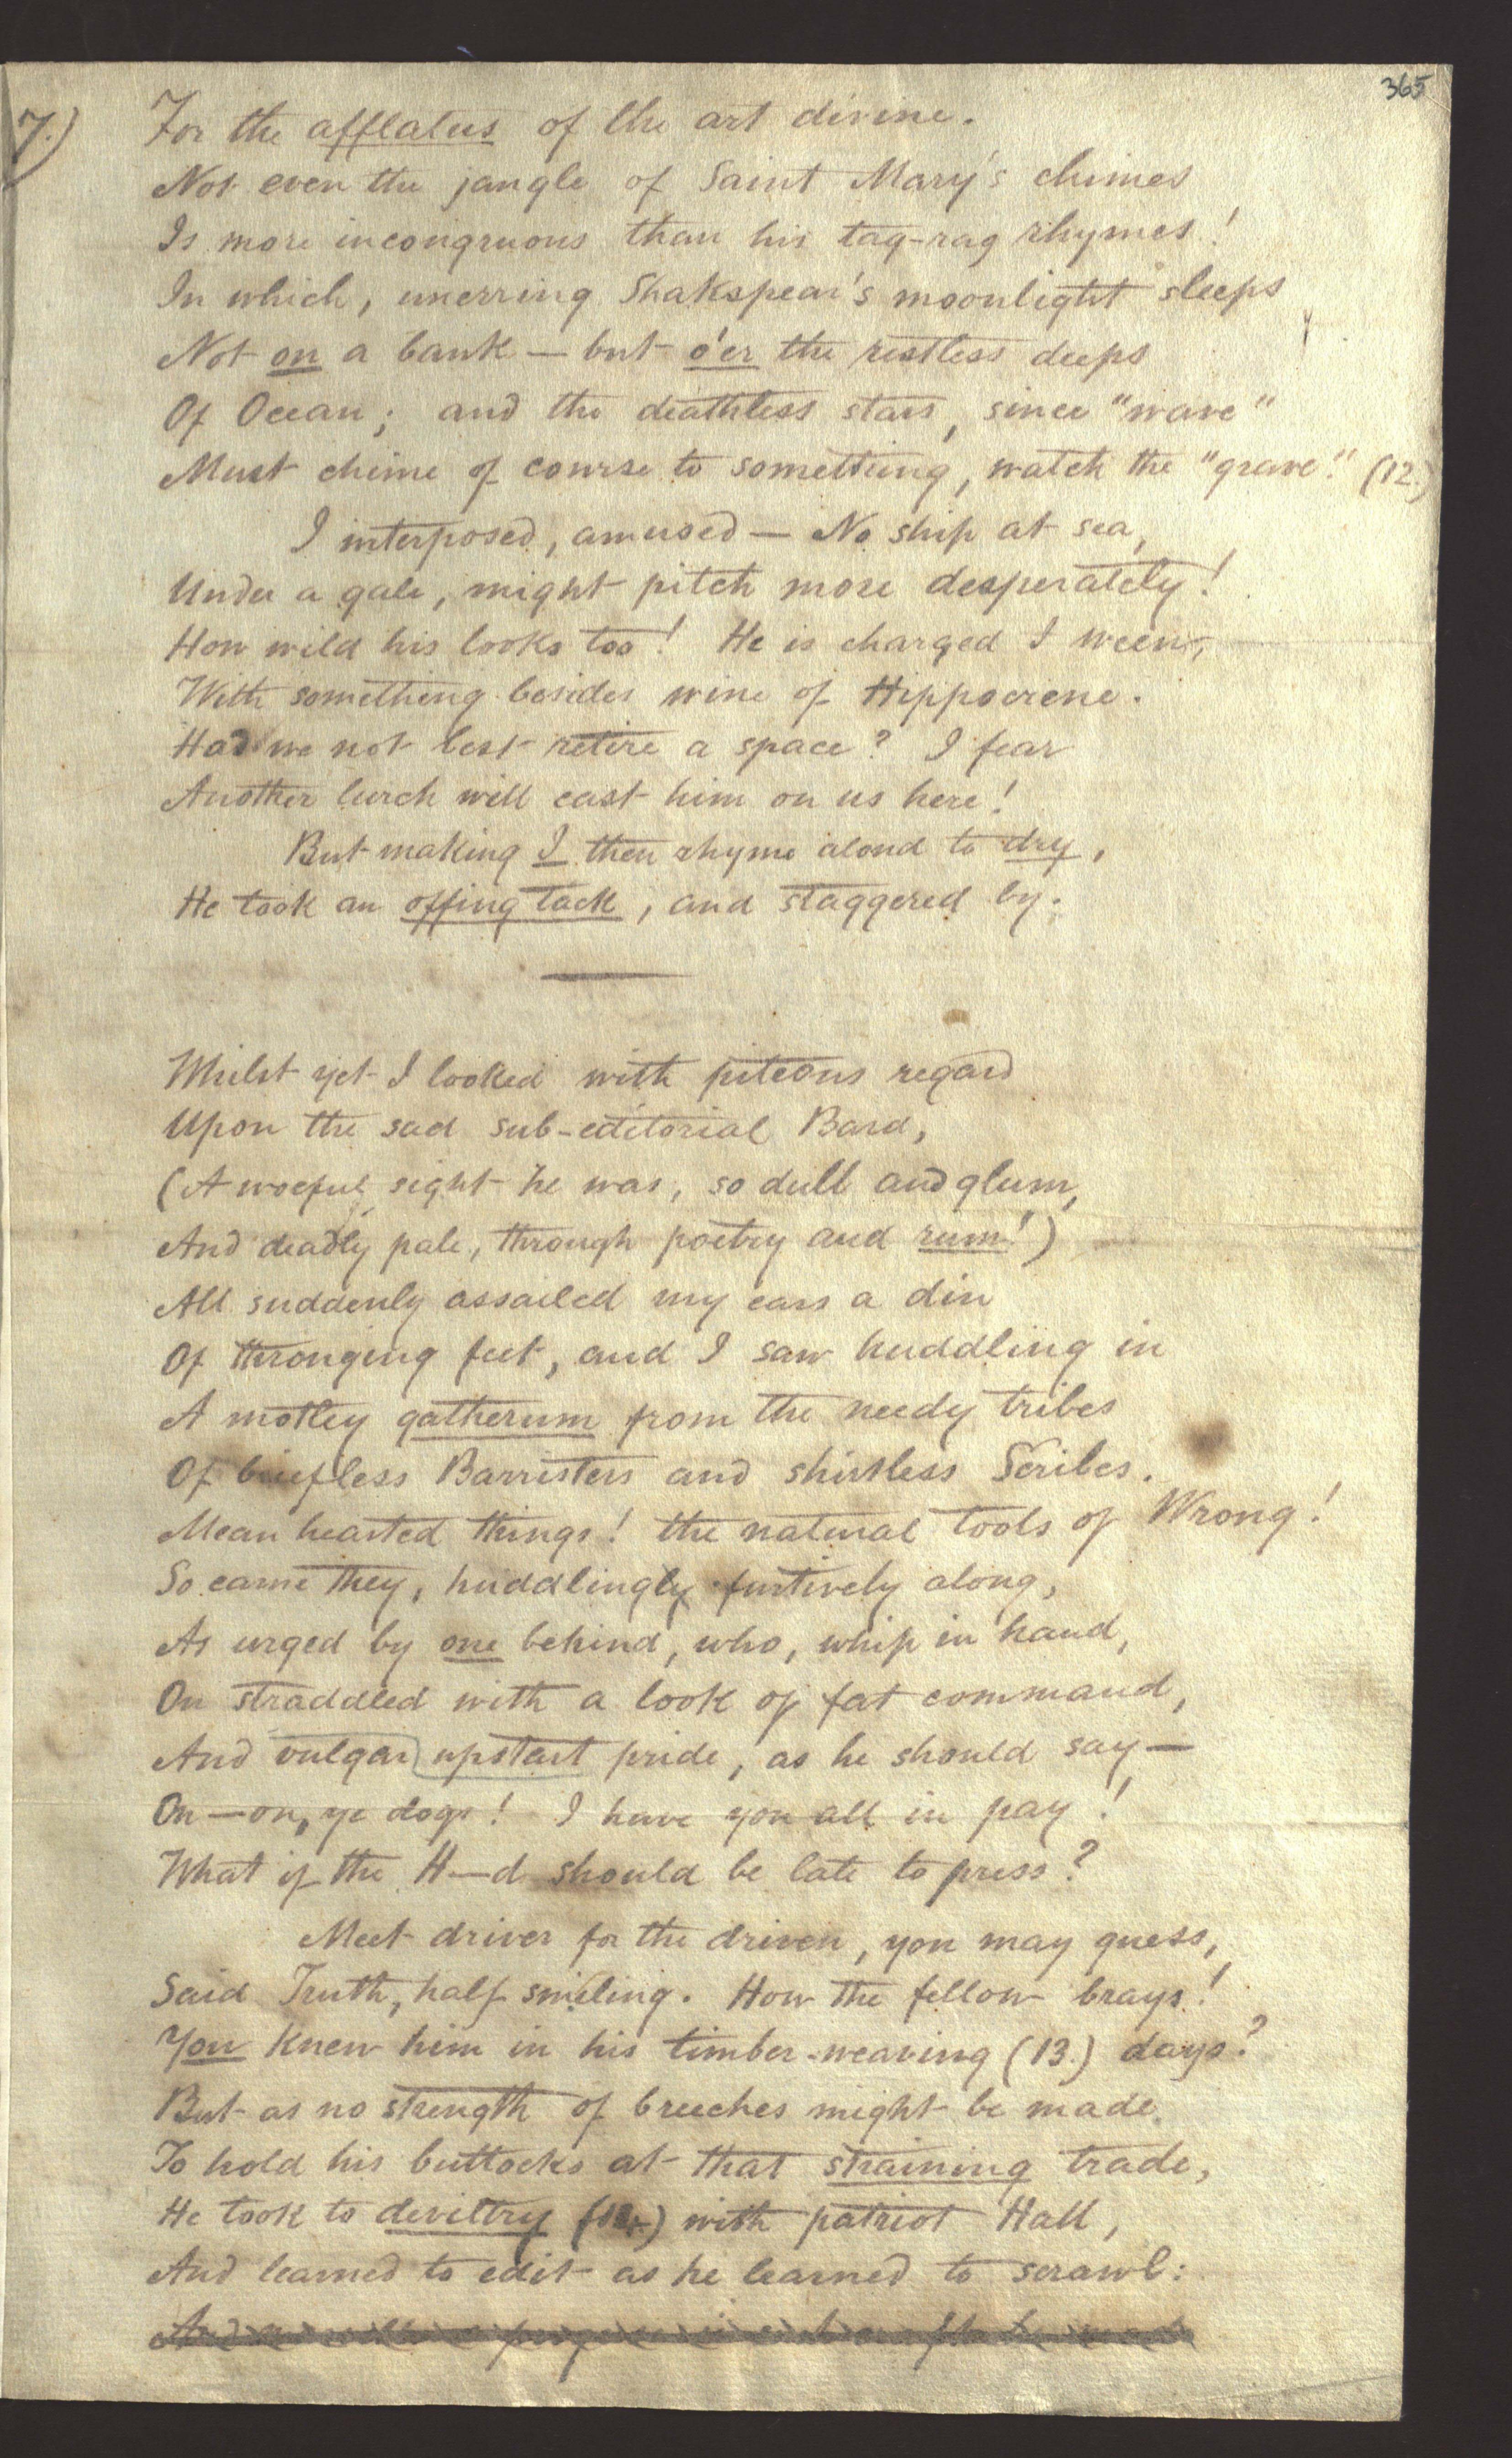 365
7.)
For the afflatus of the art divine.
Not even the jangle of Saint Mary's chimes
Is more incongruous than his tag-rag rhymes!
In which, unerring Shakspear's moonlight sleeps
Not on a bank — but o'er the restless deeps
Of Ocean; and the deathless stars, since "wave"
Must chime of course to something, watch the "grave." (12.)
I interposed, amused — No ship at sea,
Under a gale, might pitch more desperately!
How wild his looks too! He is charged I ween,
With something besides wine of Hippocrene.
Had we not best retire a space? I fear
Another lurch will cast him on us here!
But making I then rhyme aloud to dry,
He took an offing tack, and staggered by.
Whilst yet I looked with piteous regard
Upon the sad sub-editorial Bard,
(A woeful sight he was, so dull and glum,
And deadly pale, through poetry and rum!)
All suddenly assailed my ears a din
Of thronging feet, and I saw huddling in
A motley gatherum from the needy tribes
Of briefless Barristers and shirtless Scribes.
Mean hearted things! the natural tools of Wrong!
So came they, huddlingly furtively along,
As urged by one behind, who, whip in hand,
On straddled with a look of fat command,
And vulgar upstart pride, as he should say —
On — on, ye dogs! I have you all in pay!
What if the H—d should be late to press?
Meet driver for the driven, you may guess,
Said Truth, half smiling. How the fellow brays!
You knew him in his timber-weaving (13.) days?
But as no strength of breeches might be made
To hold his buttocks at that straining trade,
He took to deviltry (14) with patriot Hall,
And learned to edit as he learned to scrawl: